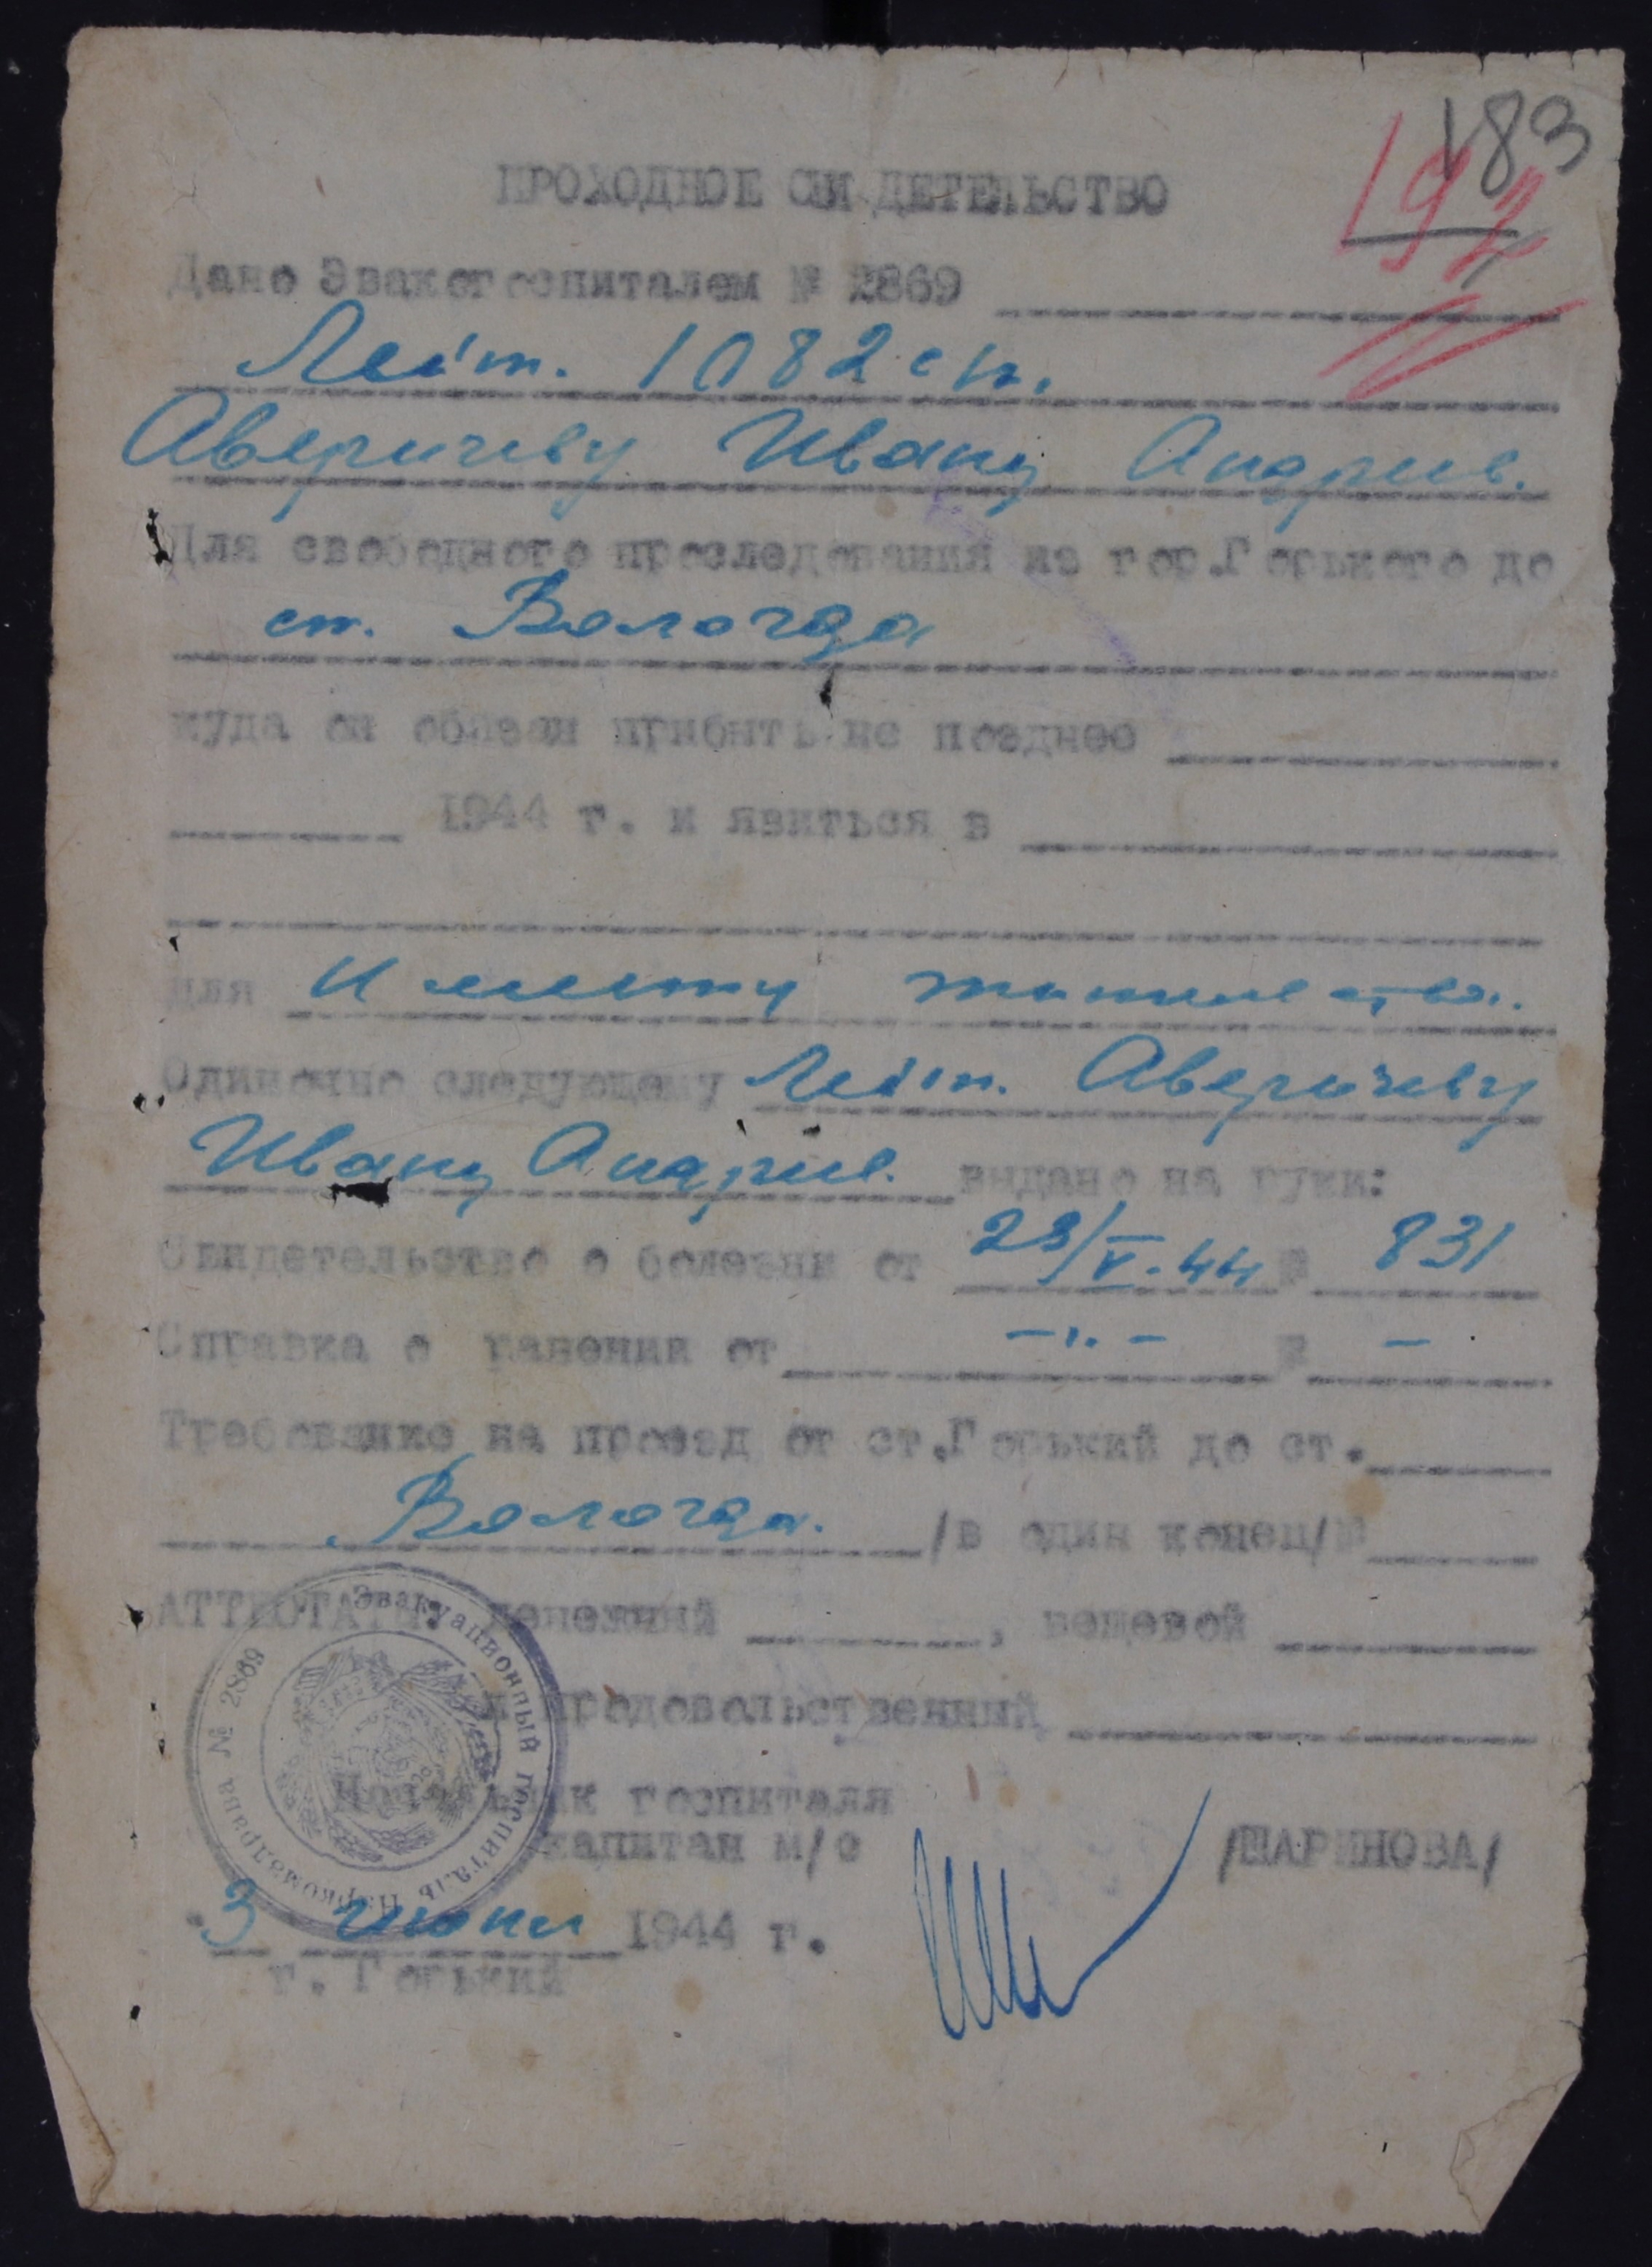 183
192
ПРОХОДНОЕ СВИДЕТЕЛЬСТВО
Дано Эвакогоспиталем № 2869
Лейт. 1082 сп.
Аверичеву Ивану Андреев.
Для свободного проследования из гор.Горького до
ст. Вологда
куда он обязан прибыть не позднее
1944 г. и явиться в
для К месту жительства.
Одиночно следующему Лейт. Аверичеву
Ивану Андреев. выдано на руки:
Свидетельство о болезни от 23/V-44 № 831
Справка о ранении от -"- № -
Требование на проезд от ст.Горький до ст.
Вологда. /в один конец/№
АТТЕСТАТЫ: денежный , вещевой
и продовольственный
Начальник госпиталя
капитан м/с /ШАРИНОВА/
3 июня 1944 г.
г. Горький
Эвакуационный госпиталь Наркомздрава № 2869